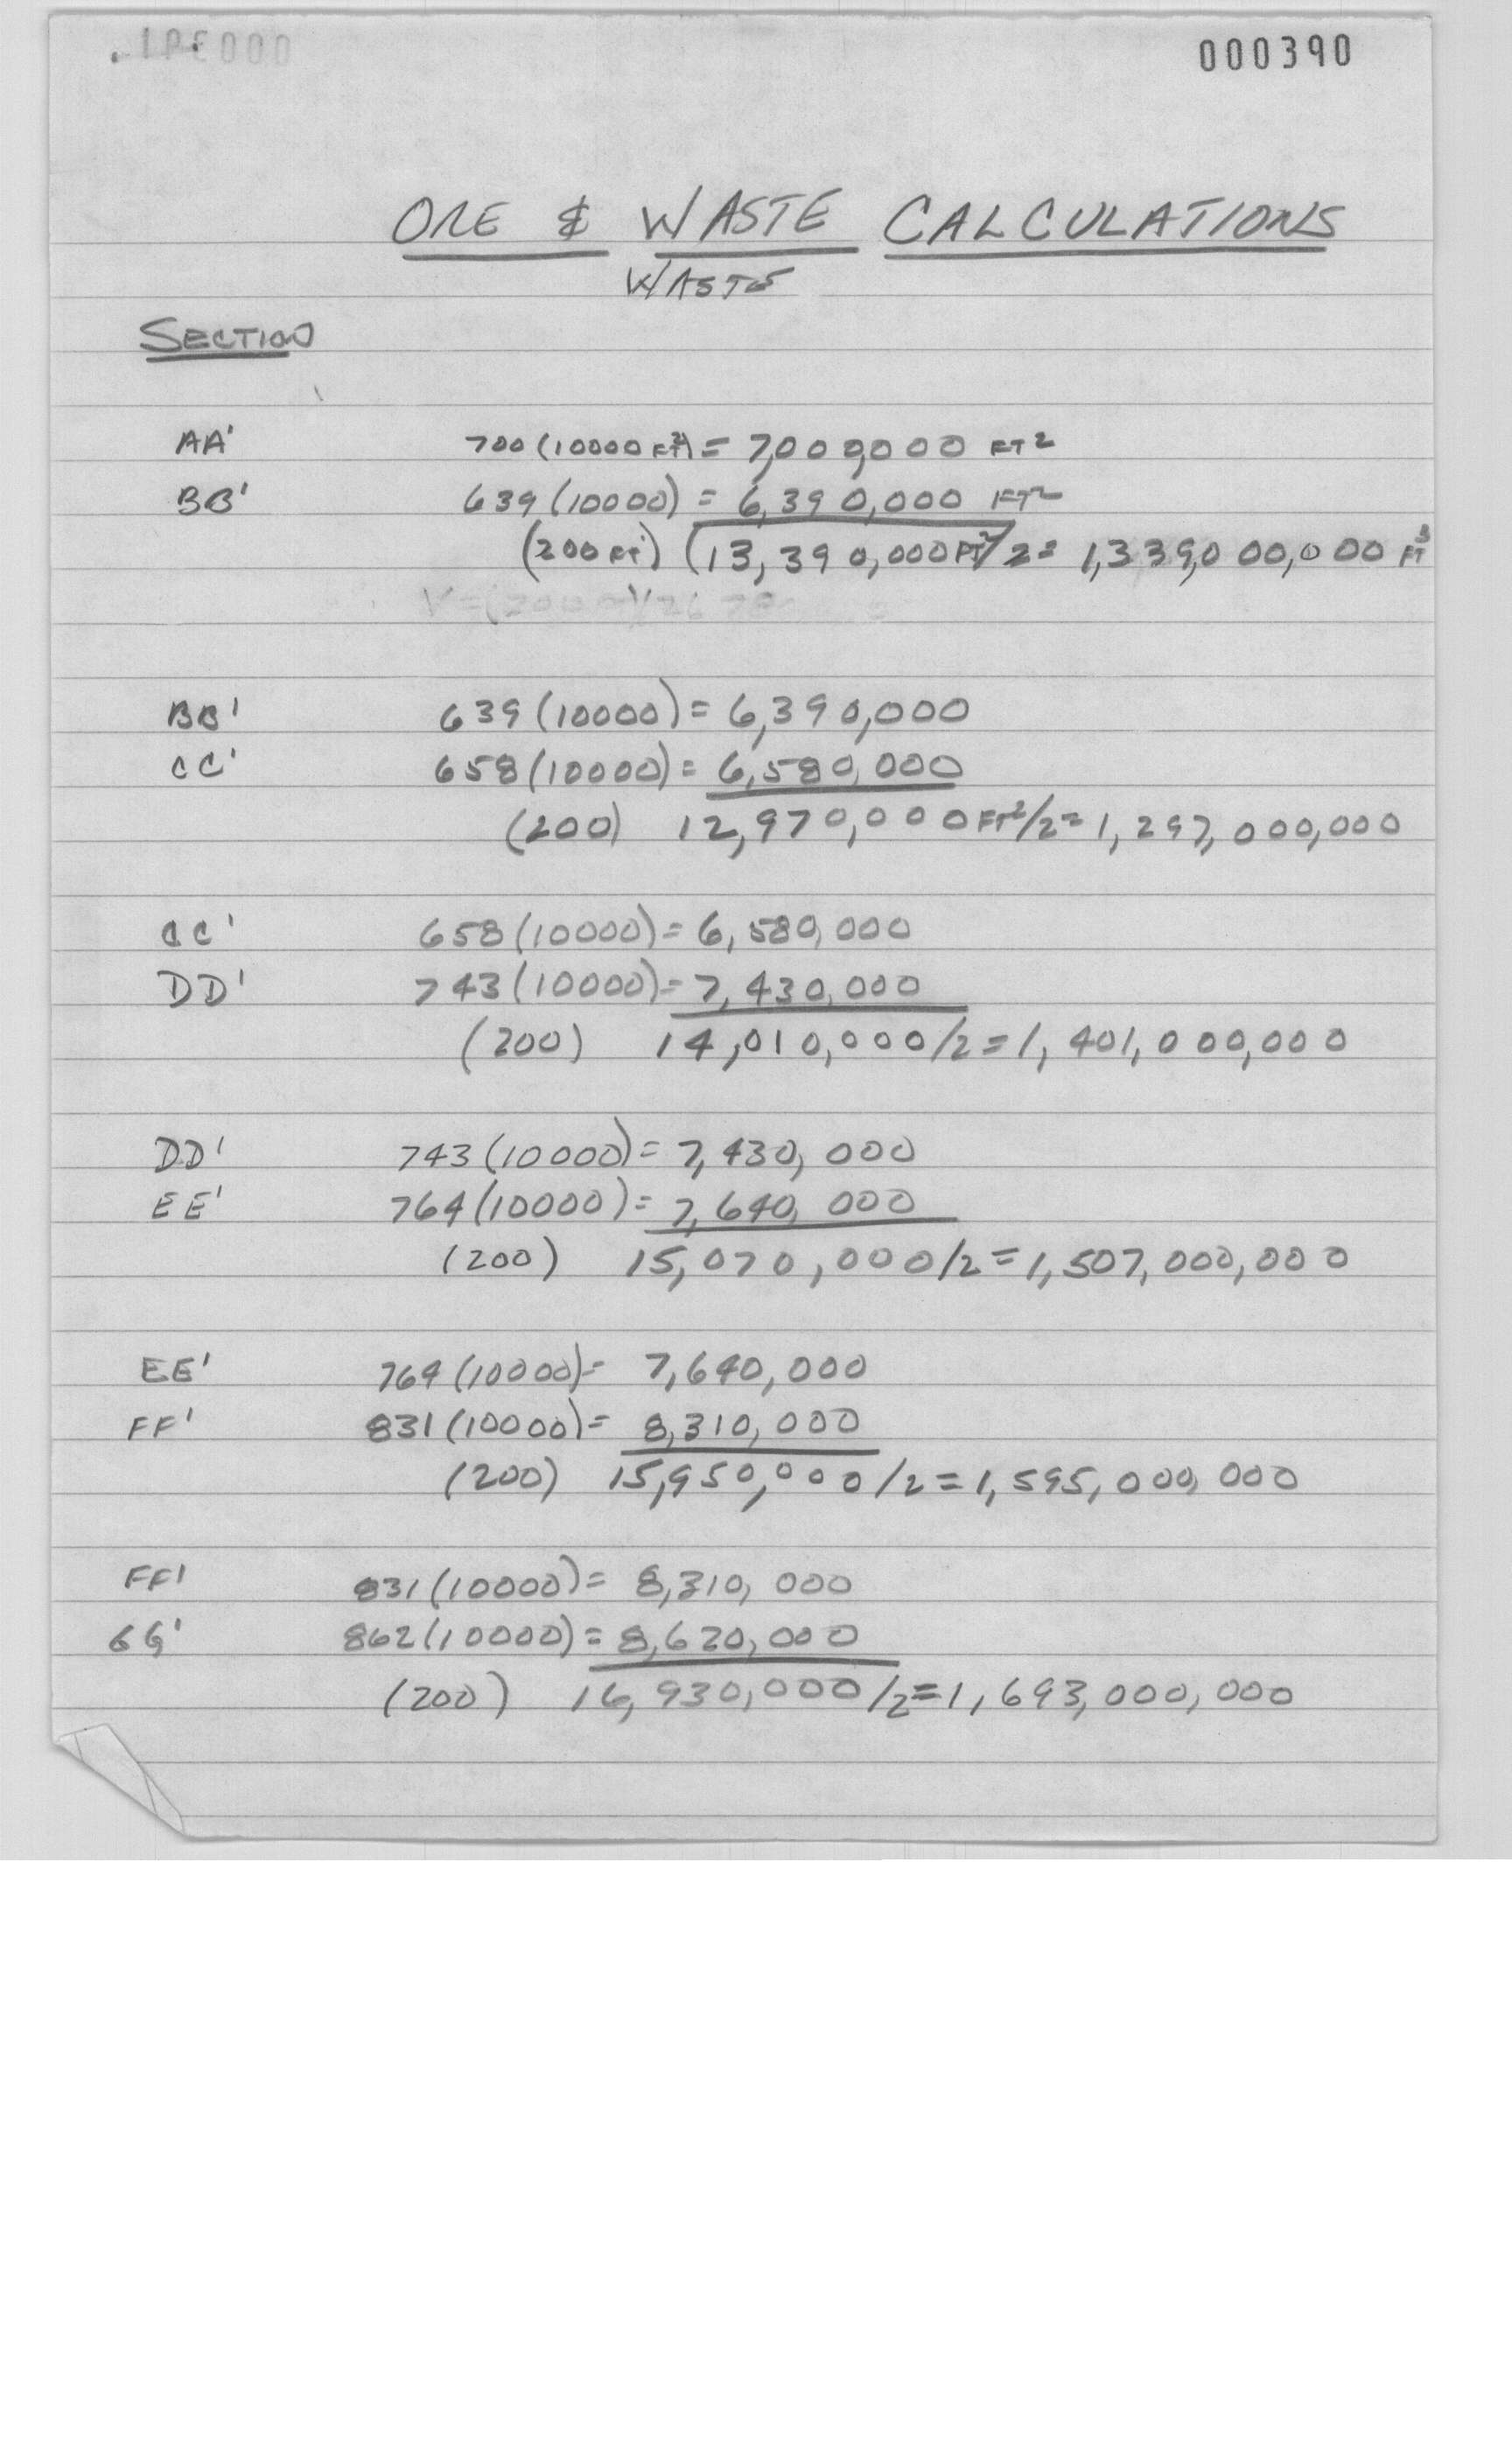 000390
ORE & WASTE CALCULATIONS
WASTE
SECTION
AA' 700 (10000 FT²) = 7,000,000 FT²
BB' 639 (10000) = 6,390,000 FT²
(200 FT) (13,390,000 FT²)/2 = 1,339,000,000 FT³
BB' 639 (10000) = 6,390,000
CC' 658 (10000) = 6,580,000
(200) 12,970,000 FT²/2 = 1,297,000,000
CC' 658 (10000) = 6,580,000
DD' 743 (10000) = 7,430,000
(200) 14,010,000/2 = 1,401,000,000
DD' 743 (10000) = 7,430,000
EE' 764 (10000) = 7,640,000
(200) 15,070,000/2 = 1,507,000,000
EE' 764 (10000) = 7,640,000
FF' 831 (10000) = 8,310,000
(200) 15,950,000/2 = 1,595,000,000
FF' 831 (10000) = 8,310,000
GG' 862 (10000) = 8,620,000
(200) 16,930,000/2 = 1,693,000,000